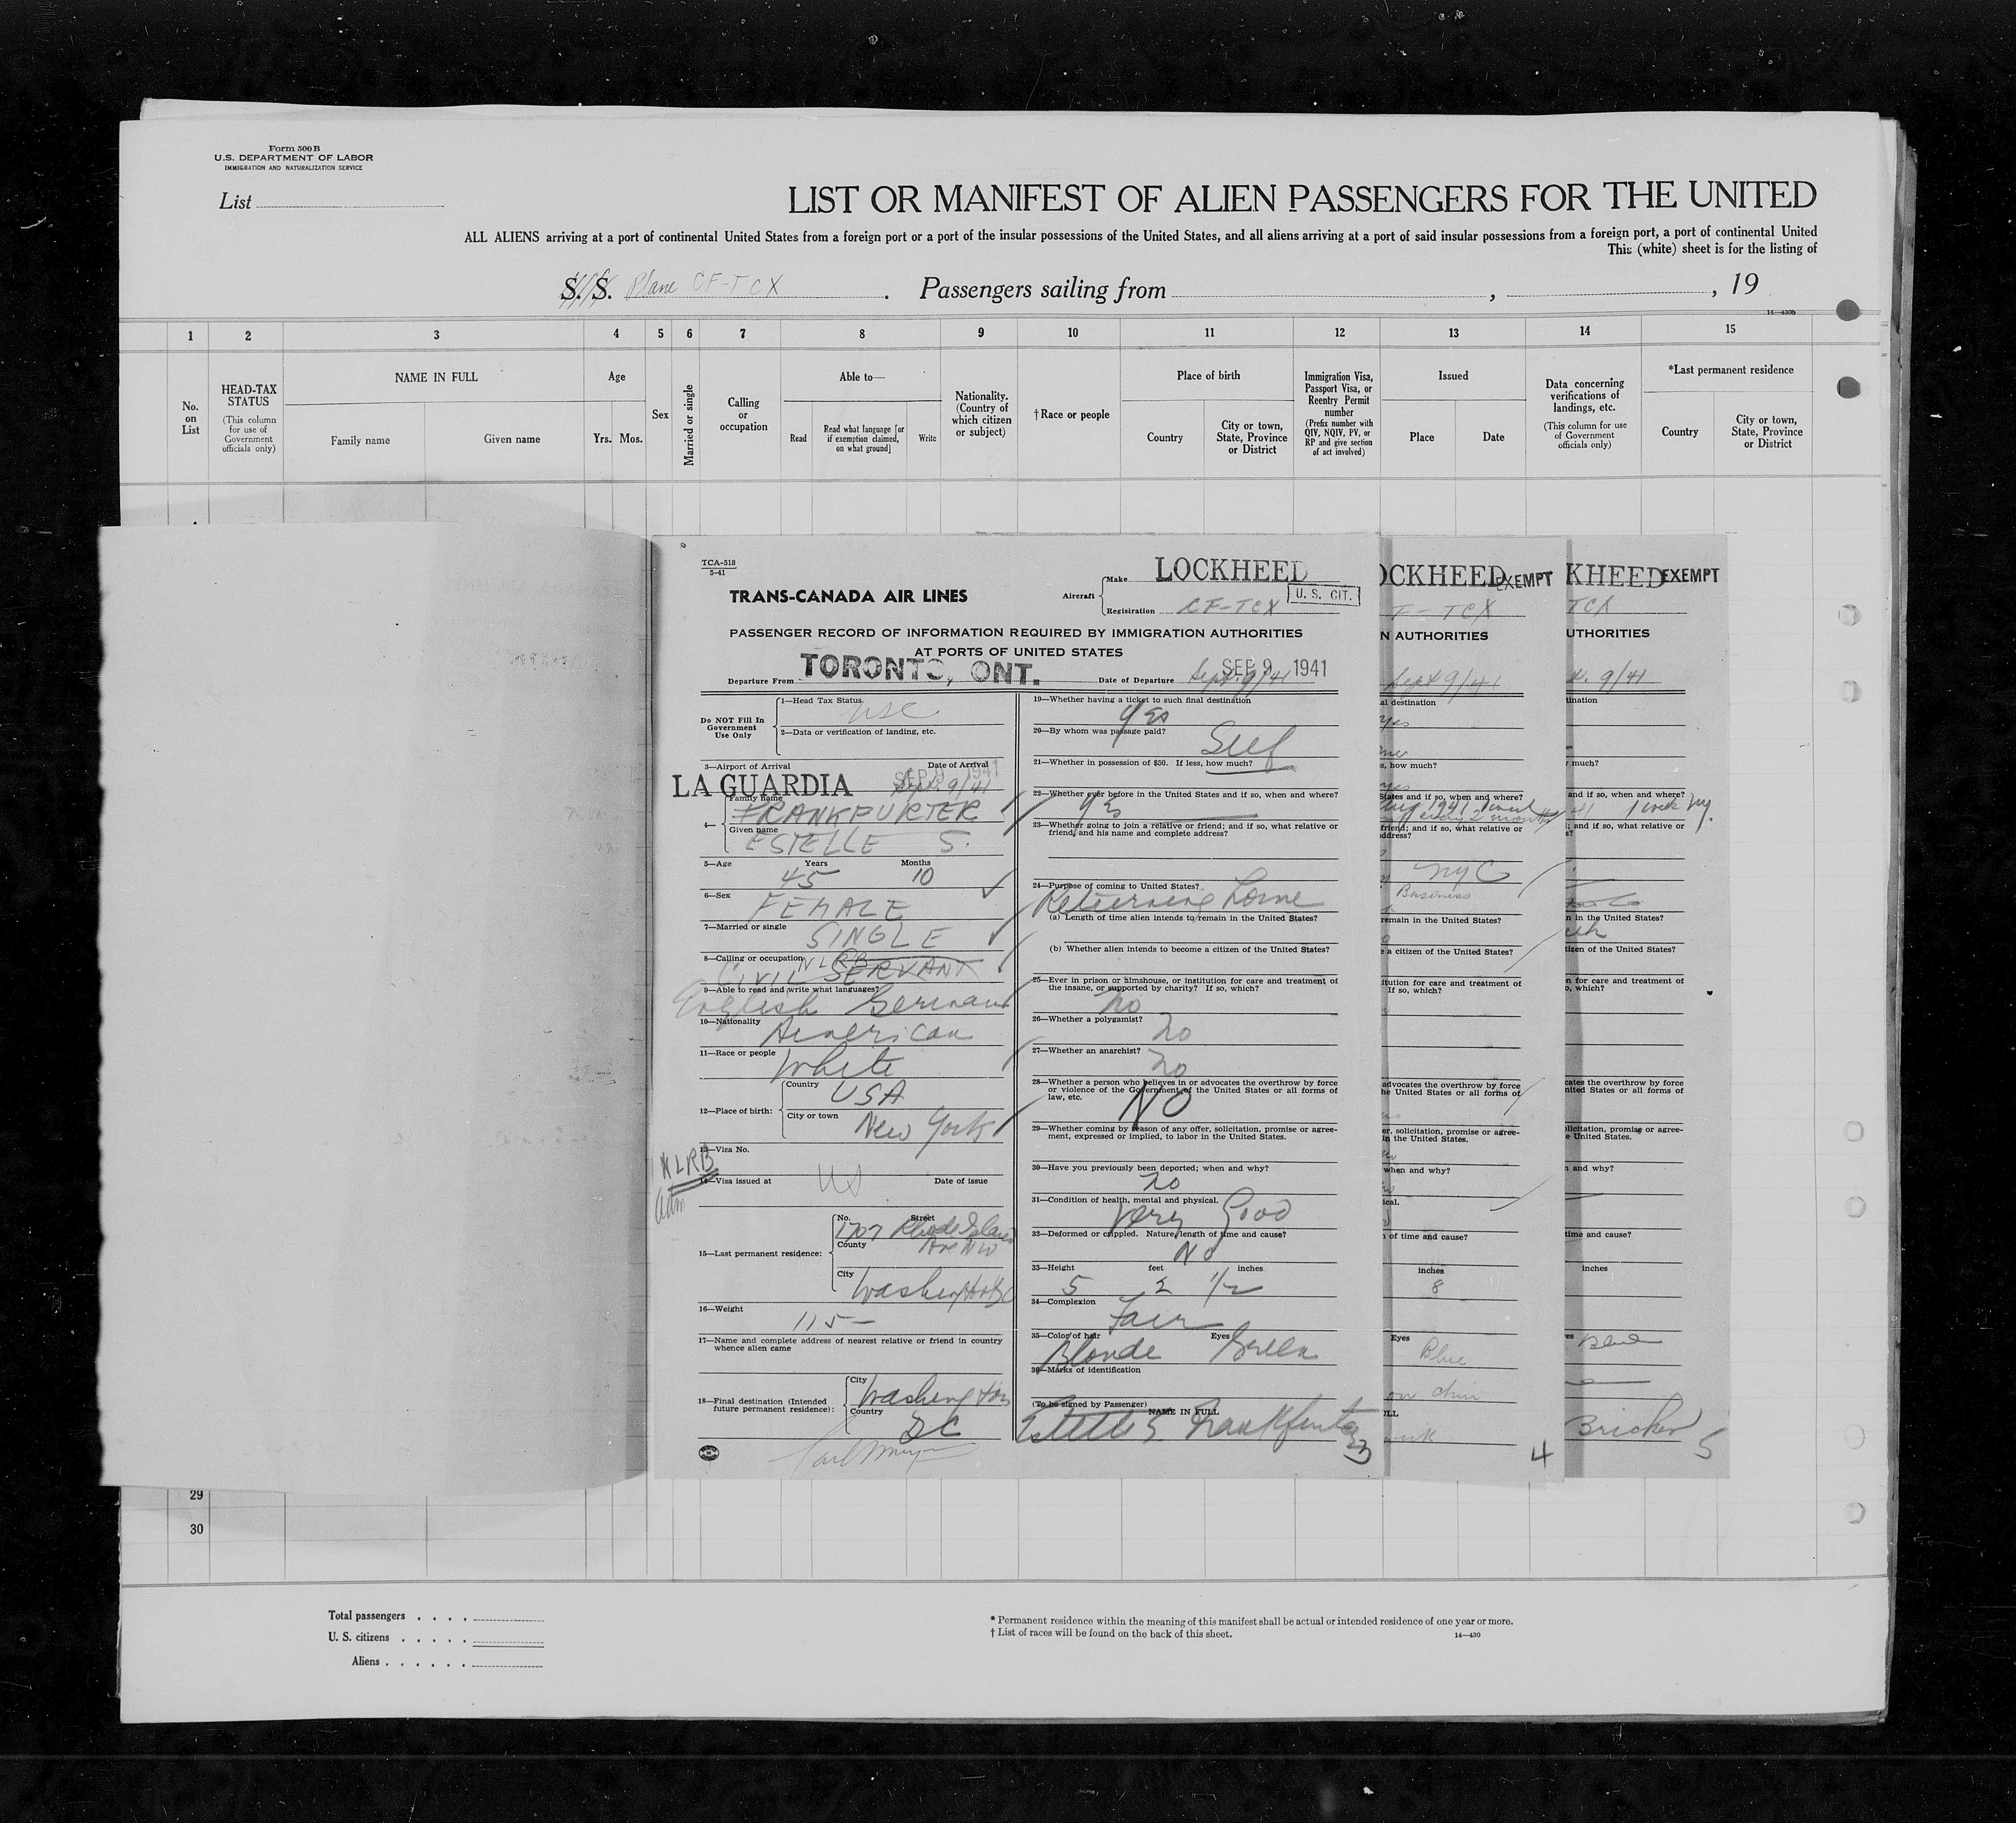 Form 500 B
U.S. DEPARTMENT OF LABOR
IMMIGRATION AND NATURALIZATION SERVICE
List
LIST OR MANIFEST OF ALIEN PASSENGERS FOR THE UNITED
ALL ALIENS arriving at a port of continental United States from a foreign port or a port of the insular possessions of the United States, and all aliens arriving at a port of said insular possessions from a foreign port, a port of continental United
This (white) sheet is for the listing of
S. S. Plane CF-TCX . Passengers sailing from , , 19
14—430b
1 2 3 4 5 6 7 8 9 10 11 12 13 14 15
No. on List
HEAD-TAX STATUS
(This column for use of Government officials only)
NAME IN FULL
Family name Given name
Age
Yrs. Mos.
Sex
Married or single
Calling or occupation
Able to—
Read
Read what language [or if exemption claimed, on what ground]
Write
Nationality. (Country of which citizen or subject)
†Race or people
Place of birth
Country
City or town, State, Province or District
Immigration Visa, Passport Visa, or Reentry Permit number
(Prefix number with QIV, NQIV, PV, or RP and give section of act involved)
Issued
Place Date
Data concerning verifications of landings, etc.
(This column for use of Government officials only)
*Last permanent residence
Country
City or town, State, Province or District
TCA-518
5-41
TRANS-CANADA AIR LINES
Aircraft
Make LOCKHEED
U. S. CIT.
Registration CF-TCX
PASSENGER RECORD OF INFORMATION REQUIRED BY IMMIGRATION AUTHORITIES
AT PORTS OF UNITED STATES
Departure From TORONTO, ONT. Date of Departure Sept. 9/41 SEP 9 1941
Do NOT Fill In Government Use Only
1—Head Tax Status USC
2—Data or verification of landing, etc.
3—Airport of Arrival Date of Arrival
LA GUARDIA SEP 9 1941 Sept. 9/41
4— Family name
FRANKFURTER
Given name
ESTELLE S.
5—Age Years Months
45 10
6—Sex
FEMALE
7—Married or single
SINGLE
8—Calling or occupation NLRB
CIVIL SERVANT
9—Able to read and write what languages?
English German
10—Nationality
American
11—Race or people
White
12—Place of birth: Country
USA
City or town
New York
13—Visa No.
NLRB
14—Visa issued at US Date of issue
Adm
15—Last permanent residence:
No. Street
1707 Rhode Island
County Ave NW
City
Washington DC
16—Weight
115
17—Name and complete address of nearest relative or friend in country
whence alien came
18—Final destination (Intended future permanent residence):
City
Washington
Country
DC
19—Whether having a ticket to such final destination
yes
20—By whom was passage paid?
Self
21—Whether in possession of $50. If less, how much?
22—Whether ever before in the United States and if so, when and where?
yes
23—Whether going to join a relative or friend; and if so, what relative or
friend, and his name and complete address?
24—Purpose of coming to United States?
Returning home
(a) Length of time alien intends to remain in the United States?
(b) Whether alien intends to become a citizen of the United States?
25—Ever in prison or almshouse, or institution for care and treatment of
the insane, or supported by charity? If so, which?
no
26—Whether a polygamist?
no
27—Whether an anarchist?
no
28—Whether a person who believes in or advocates the overthrow by force
or violence of the Government of the United States or all forms of
law, etc.
NO
29—Whether coming by reason of any offer, solicitation, promise or agree-
ment, expressed or implied, to labor in the United States.
30—Have you previously been deported; when and why?
no
31—Condition of health, mental and physical.
Very Good
32—Deformed or crippled. Nature, length of time and cause?
No
33—Height feet inches
5 2 1/2
34—Complexion
Fair
35—Color of hair Eyes
Blonde Green
36—Marks of identification
(To be signed by Passenger) NAME IN FULL
Estelle S Frankfurter
3
OCKHEED EXEMPT
TCX
N AUTHORITIES
Sept 9/41
al destination
yes
s, how much?
yes
States and if so, when and where?
Aug 1941 1 week
every 2 months
friend; and if so, what relative or
address?
NYC
Business
remain in the United States?
e a citizen of the United States?
itution for care and treatment of
If so, which?
advocates the overthrow by force
he United States or all forms of
er, solicitation, promise or agree-
in the United States.
when and why?
ical.
n of time and cause?
inches
8
Eyes
Blue
on chin
ULL
4
KHEED EXEMPT
TCX
UTHORITIES
9/41
tination
much?
and if so, when and where?
41 1 week NY.
; and if so, what relative or
s?
n in the United States?
tizen of the United States?
n for care and treatment of
o, which?
cates the overthrow by force
nited States or all forms of
olicitation, promise or agree-
e United States.
n and why?
time and cause?
inches
es
Blue
Bricker
5
29
30
Total passengers . . . .
U. S. citizens . . . . .
Aliens . . . . . .
* Permanent residence within the meaning of this manifest shall be actual or intended residence of one year or more.
† List of races will be found on the back of this sheet.
14—430